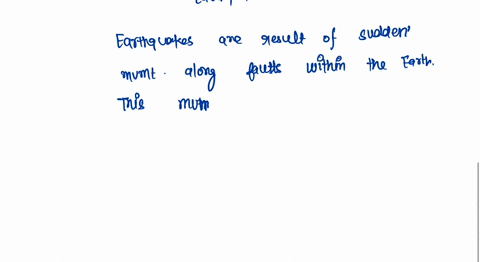 Earthquakes are result of sudden
mvmt. along faults within the Earth.
This mvm